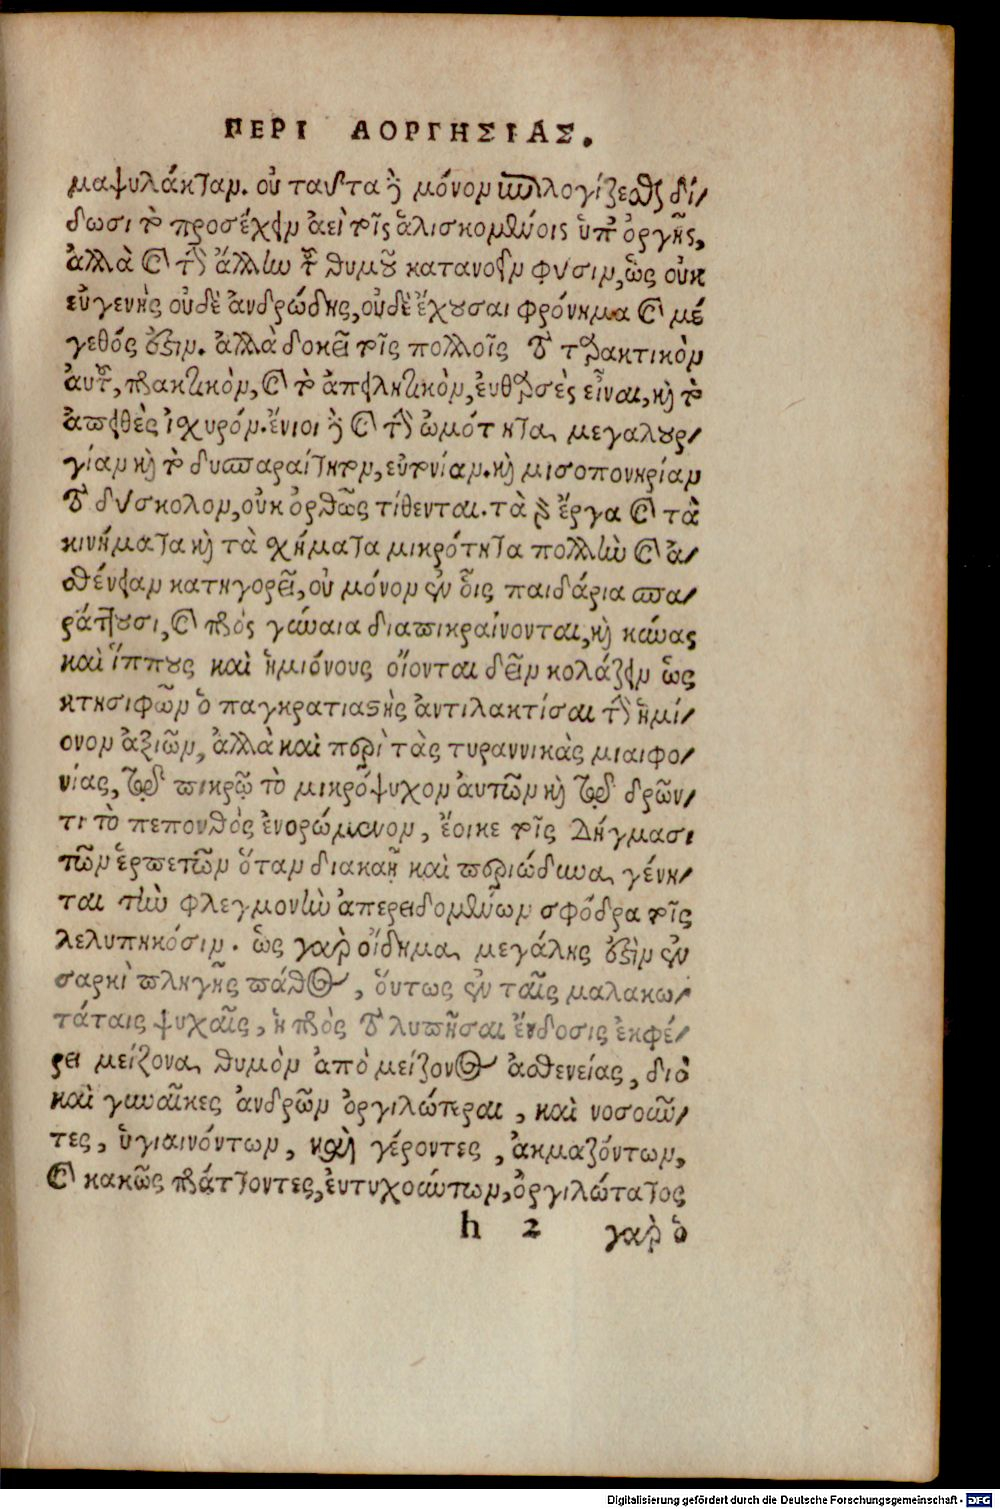 ΠΕΡΙ ΑΟΡΓΗΣΙΑΣ.
μαψυλάκταν. οὐ ταῦτα δὲ μόνον ἐπιλογίζεσθαι δί/
δωσι τὸ προσέχειν ἀεὶ τοῖς ἁλισκομένοις ὑπ' ὀργῆς,
ἀλλὰ καὶ τὴν ἄλλην τοῦ θυμοῦ κατανοεῖν φύσιν, ὡς οὐκ
εὐγενὴς οὐδὲ ἀνδρώδης, οὐδὲ ἔχουσαι φρόνημα καὶ μέ
γεθός ἐξιν. ἀλλὰ δοκεῖ τοῖς πολλοῖς τὸ ταρακτικὸν
αὐτοῦ, πρακτικὸν, καὶ τὸ ἀπειλητικὸν, εὐθαρσὲς εἶναι, καὶ τὸ
ἀπειθὲς ἰσχυρόν. ἔνιοι δὲ καὶ τὴν ὠμότητα μεγαλουρ/
γίαν καὶ τὸ δυσπαραίτητον, εὐτονίαν. καὶ μισοπονηρίαν
τὸ δύσκολον, οὐκ ὀρθῶς τίθενται. τὰ γὰρ ἔργα καὶ τὰ
κινήματα καὶ τὰ σχήματα μικρότητα πολλὴν καὶ ἀ/
σθένειαν κατηγορεῖ, οὐ μόνον ἐν οἷς παιδάρια σπα/
ράττουσι, καὶ πρὸς γύναια διαπικραίνονται, καὶ κύνας
καὶ ἵππους καὶ ἡμιόνους οἴονται δεῖν κολάζειν ὡς
κτησιφῶν ὁ παγκρατιαστὴς ἀντιλακτίσαι τὴν ἡμί/
ονον ἀξιῶν, ἀλλὰ καὶ περὶ τὰς τυραννικὰς μιαιφο/
νίας, τῷ πικρῷ τὸ μικρόψυχον αὐτῶν καὶ τῷ δρῶν/
τι τὸ πεπονθὸς ἐνορώμενον, ἔοικε τοῖς Δήγμασι
τῶν ἑρπετῶν ὅταν διακαῆ καὶ περιώδυνα γένη/
ται τὴν φλεγμονὴν ἀπερειδομένων σφόδρα τοῖς
λελυπηκόσιν. ὡς γὰρ οἴδημα μεγάλης ἐξὶν ἐν
σαρκὶ πληγῆς πάθος, ὅυτως ἐν ταῖς μαλακω/
τάταις ψυχαῖς, ἡ πρὸς τὸ λυπῆσαι ἔνδοσις ἐκφέ/
ρει μείζονα θυμὸν ἀπὸ μείζονος ἀσθενείας, διὸ
καὶ γυναῖκες ἀνδρῶν ὀργιλώτεραι, καὶ νοσοῦν/
τες, ὑγιαινόντων, καὶ γέροντες, ἀκμαζόντων,
καὶ κακῶς πράττοντες, ἐυτυχούντων, ὀργιλώτατος
h 2 γὰρ ὁ
Digitalisierung gefördert durch die Deutsche Forschungsgemeinschaft - DFG